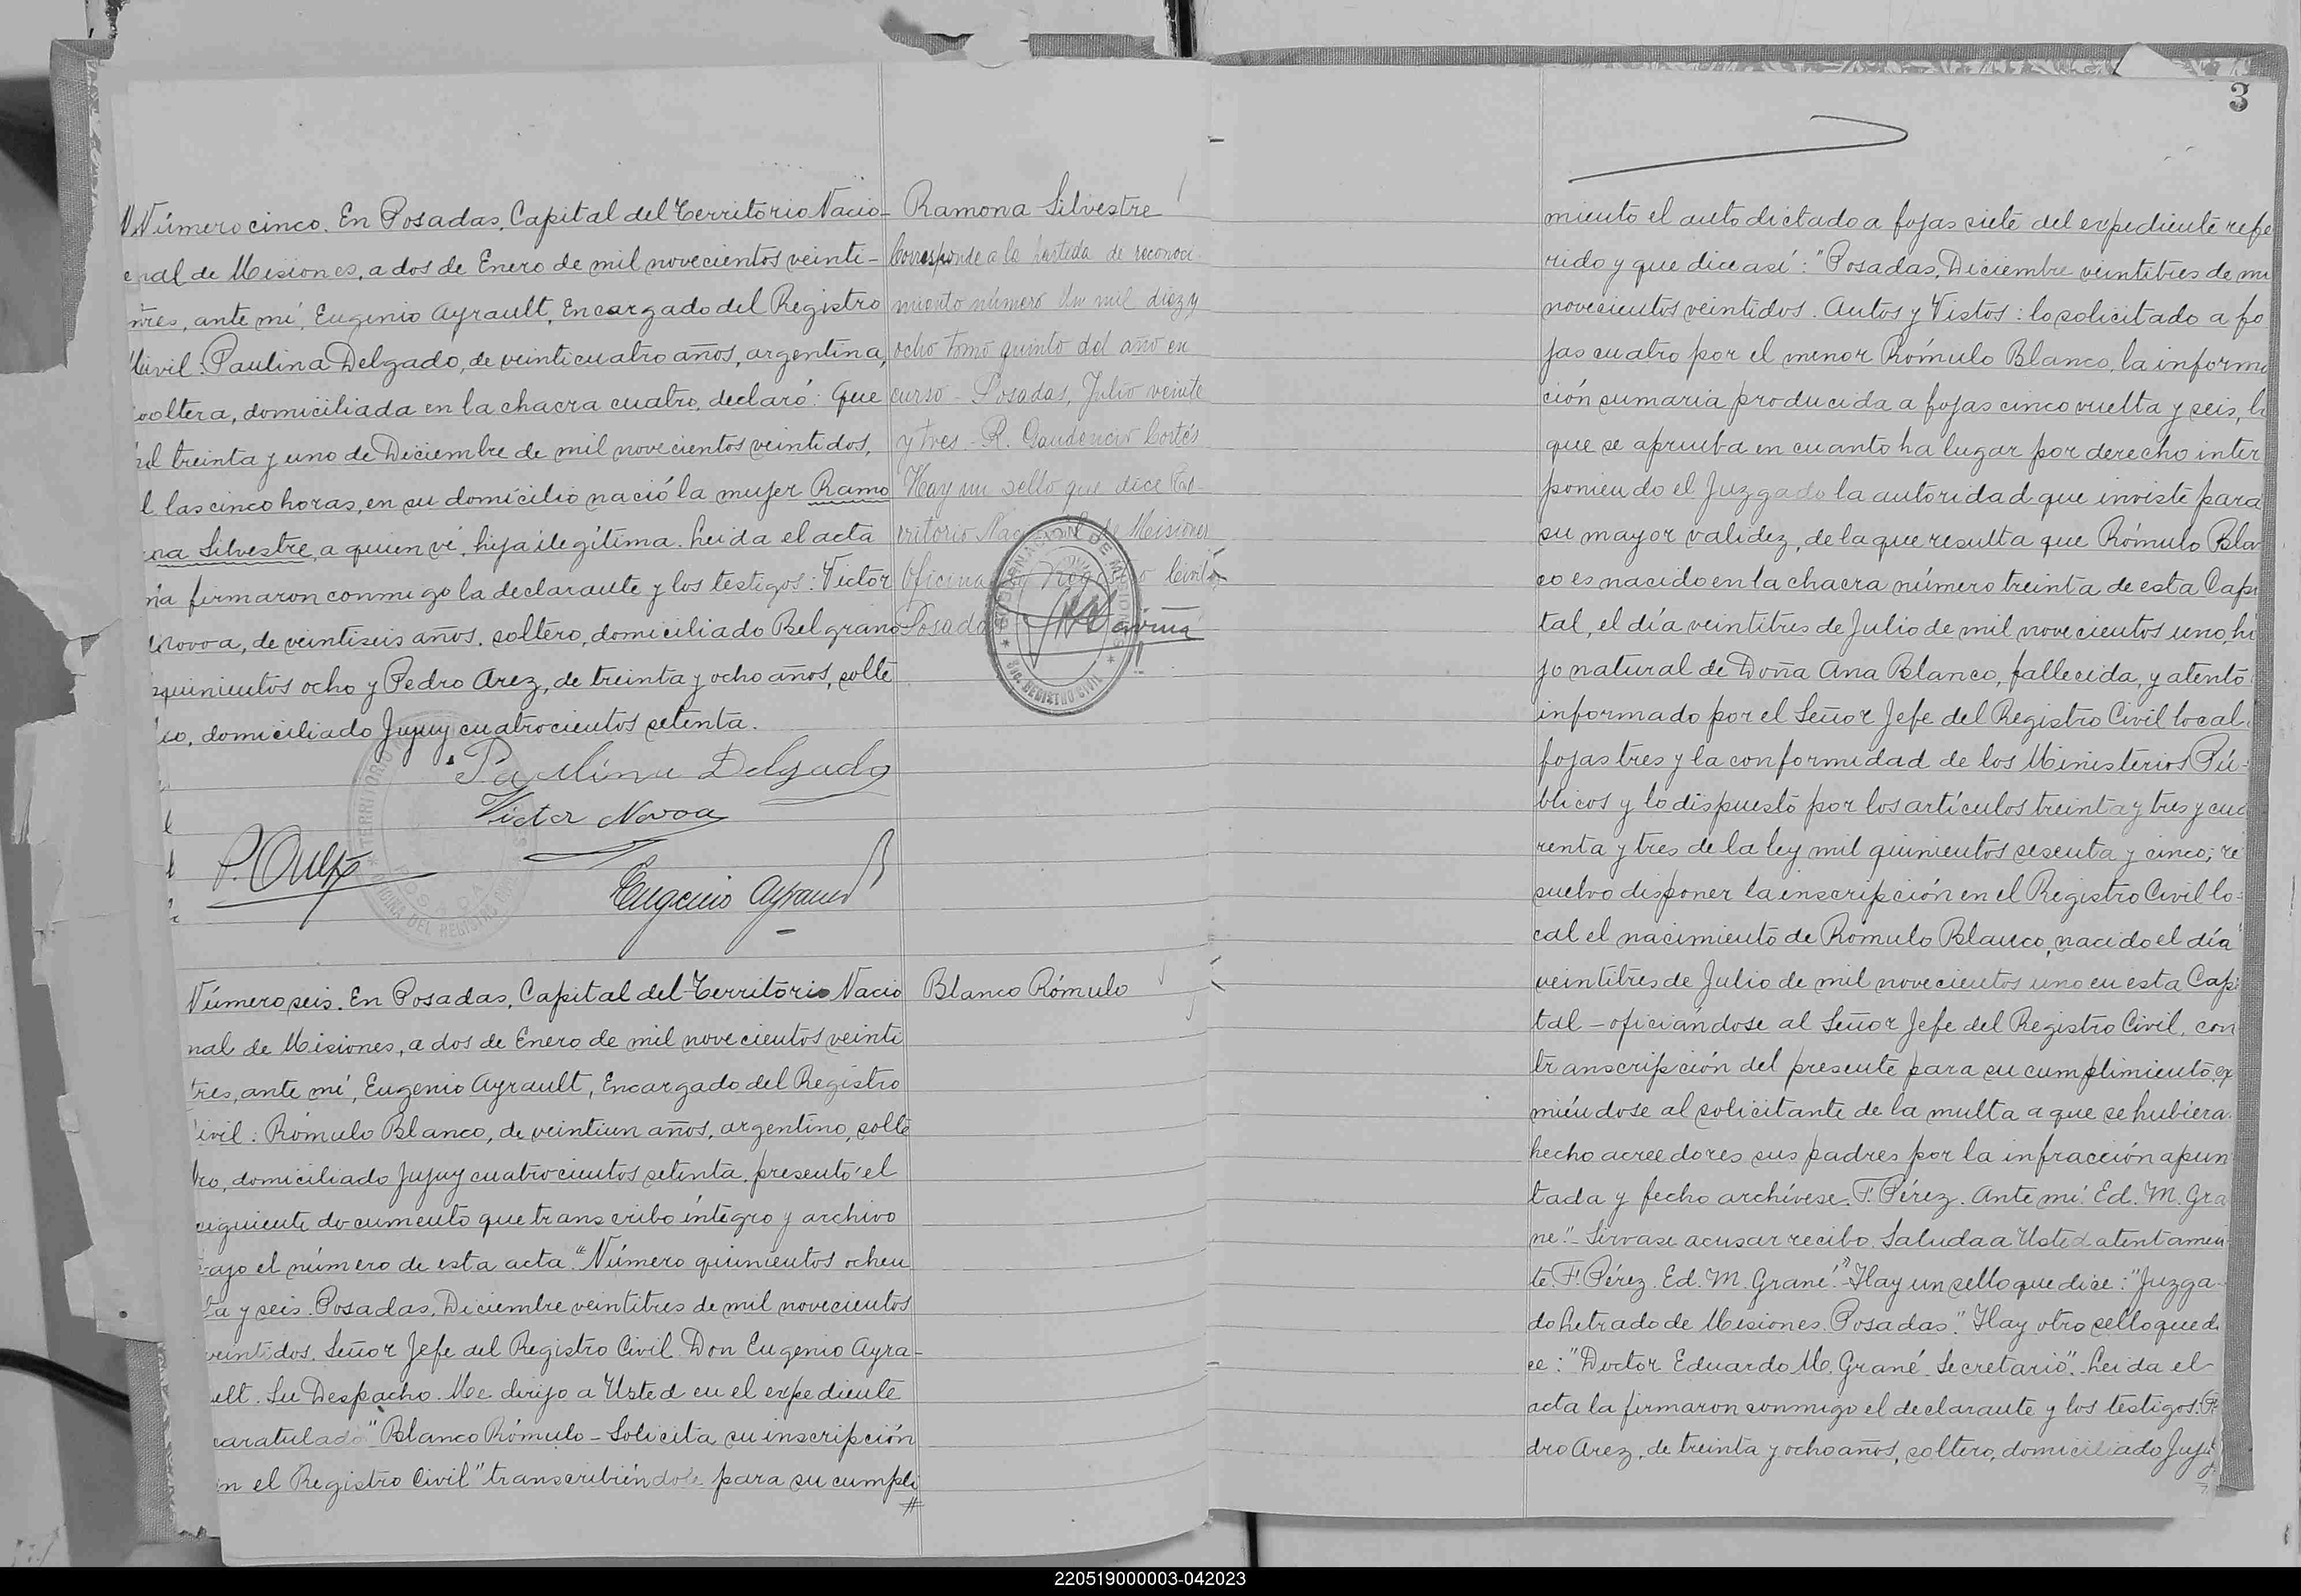 Número cinco. En Posadas, Capital del Territorio Nacio-
nal de Misiones, a dos de Enero de mil novecientos veinti-
tres, ante mí, Eugenio Ayrault, Encargado del Registro
Civil: Paulina Delgado, de veinticuatro años, argentina,
soltera, domiciliada en la chacra cuatro, declaró: Que
el treinta y uno de Diciembre de mil novecientos veintidos,
a las cinco horas, en su domicilio nació la mujer Ramo
na Silvestre, a quien ví, hija ilegítima. Leida el acta
la firmaron conmigo la declarante y los testigos: Victor
Novoa, de veintiseis años, soltero, domiciliado Belgrano
quinientos ocho y Pedro Arez, de treinta y ocho años, solte
ro, domiciliado Jujuy cuatrocientos setenta.
Paulina Delgado
Victor Novoa
Eugenio Ayrault
Ramona Silvestre
Corresponde a la partida de reconoci
miento número Un mil diez y
ocho tomo quinto del año en
curso - Posadas, Julio veinte
y tres - R. Gaudencio Cortés
Hay un sello que dice Te-
rritorio Nacional de Misiones
Oficina Registro Civil
Posadas
GOBERNACION DE MISIONES
REGISTRO CIVIL
Número seis. En Posadas, Capital del Territorio Nacio
nal de Misiones, a dos de Enero de mil novecientos veinti
tres, ante mí, Eugenio Ayrault, Encargado del Registro
Civil: Rómulo Blanco, de veintiun años, argentino, solte
ro, domiciliado Jujuy cuatrocientos setenta, presentó el
siguiente documento que transcribo íntegro y archivo
bajo el número de esta acta "Número quinientos ochen
ta y seis. Posadas, Diciembre veintitres de mil novecientos
veintidos. Señor Jefe del Registro Civil Don Eugenio Ayra-
ult. Su Despacho. Me dirijo a Usted en el expediente
caratulado "Blanco Rómulo - Solicita su inscripción
en el Registro Civil" transcribiéndole para su cumpli
#
Blanco Rómulo
3
miento el auto dictado a fojas siete del expediente refe
rido y que dice así: "Posadas, Diciembre veintitres de mi
novecientos veintidos. Autos y Vistos: lo solicitado a fo
jas cuatro por el menor Rómulo Blanco, la informa
ción sumaria producida a fojas cinco vuelta y seis, la
que se aprueba en cuanto ha lugar por derecho inter
poniendo el Juzgado la autoridad que inviste para
su mayor validez, de la que resulta que Rómulo Blan
co es nacido en la chacra número treinta de esta Capi
tal, el día veintitres de Julio de mil novecientos uno, hi
jo natural de Doña Ana Blanco, fallecida, y atento
informado por el Señor Jefe del Registro Civil local
fojas tres y la conformidad de los Ministerios Pú-
blicos y lo dispuesto por los artículos treinta y tres y cua
renta y tres de la ley mil quinientos sesenta y cinco; re
suelvo disponer la inscripción en el Registro Civil lo-
cal el nacimiento de Rómulo Blanco, nacido el día
veintitres de Julio de mil novecientos uno en esta Capi
tal - oficiándose al Señor Jefe del Registro Civil, con
transcripción del presente para su cumplimiento, ex
miéndose al solicitante de la multa a que se hubiera
hecho acreedores sus padres por la infracción apun
tada y fecho archívese. F. Pérez. Ante mí: Ed. M. Gra
né". Sírvase acusar recibo. Saluda a Usted atentamen
te F. Pérez. Ed. M. Grané". "Hay un sello que dice: "Juzga-
do Letrado de Misiones. Posadas". "Hay otro sello que di
ce: "Doctor Eduardo M. Grané. Secretario". Leida el
acta la firmaron conmigo el declarante y los testigos: Pe
dro Arez, de treinta y ocho años, soltero, domiciliado Juju
220519000003-042023